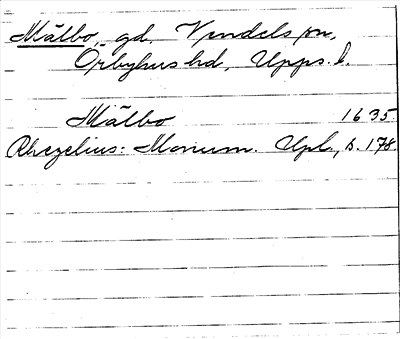 Målbo, gd, Vendels sn,
Örbyhus hd, Upps. l.
Målbo 1635.
Rhezelius: Monum. Upl., s. 178.